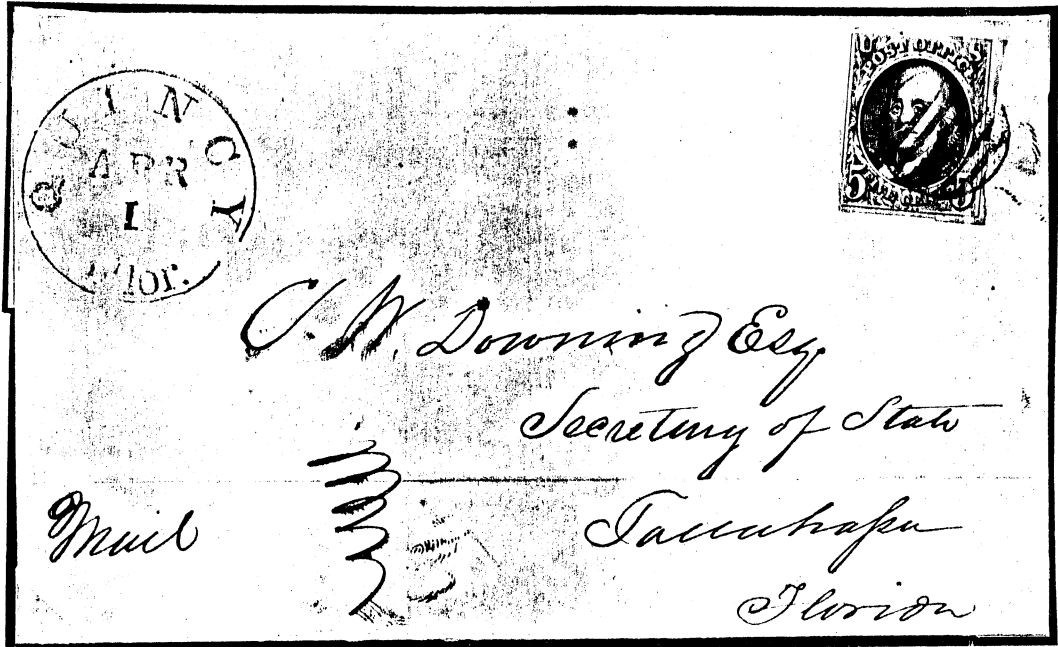 QUINCY
APR
1
Flor.
U S
POST OFFICE
5 FIVE CENTS 5
C. W. Downing Esq.
Secretary of State
Tallahassee
Florida
Mail